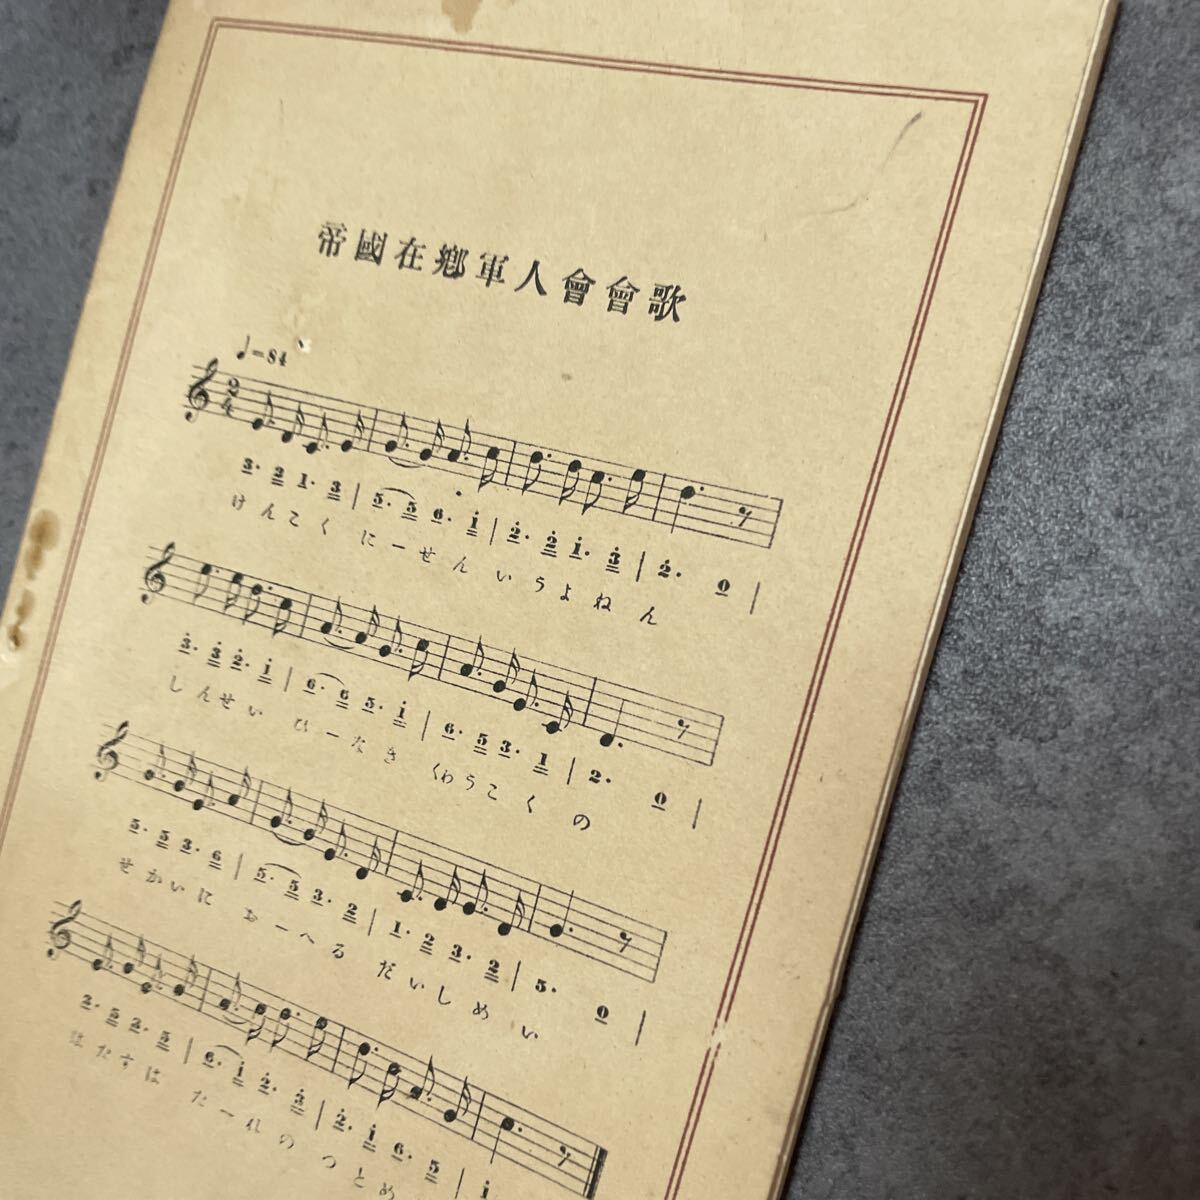 帝國在鄕軍人會會歌
♩=84
2 4
3. 2 1. 3 | 5. 5 6. i | 2. 2 i. 3 | 2. 0 |
けんこく にーせん いうよねん
3. 3 2. i | 6. 6 5. i | 6. 5 3. 1 | 2. 0 |
しんせい ひーなき くわうこくの
5. 5 3. 6 | 5. 5 3. 2 | 1. 2 3. 2 | 5. 0 |
せかいに おーへる だいしめい
6. i 2. 3 | 2. i 6. 5 | i
はたすは たーれの つとめ